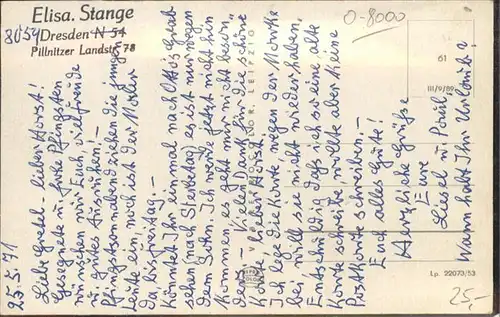 Elisa. Stange
8054 Dresden N 54
Pillnitzer Landstr. 78
0-8000
61
III/9/89
Lp. 22073/53
25,-
25.5.71
Liebe Gretel - lieber Horst!
Gesegnete u. frohe Pfingsten
wünschen wir Euch, viel Freude
u. gutes Ausruhen! -
Pfingstsonnabend ziehen die jungen
Leute ein, noch ist der Maler
da bis Freitag. -
Könntet Ihr einmal nach Ottos Grab
sehen (nach Sterbetag) es ist nur wegen
dem Stein. Ich werde jetzt nicht hin
kommen, es geht mir nicht beson
ders. - Vielen Dank für die schöne
Karte, lieber Horst!
Ich lege die Karte wegen der Marke
bei, will sie nicht wieder haben.
Entschuldig daß ich so eine alte
Karte schreibe, wollte aber keine
Postkarte schreiben. -
Euch alles Gute!
Herzliche Grüße
Eure
Liesel u. Paul
Wann habt Ihr Urlaub?